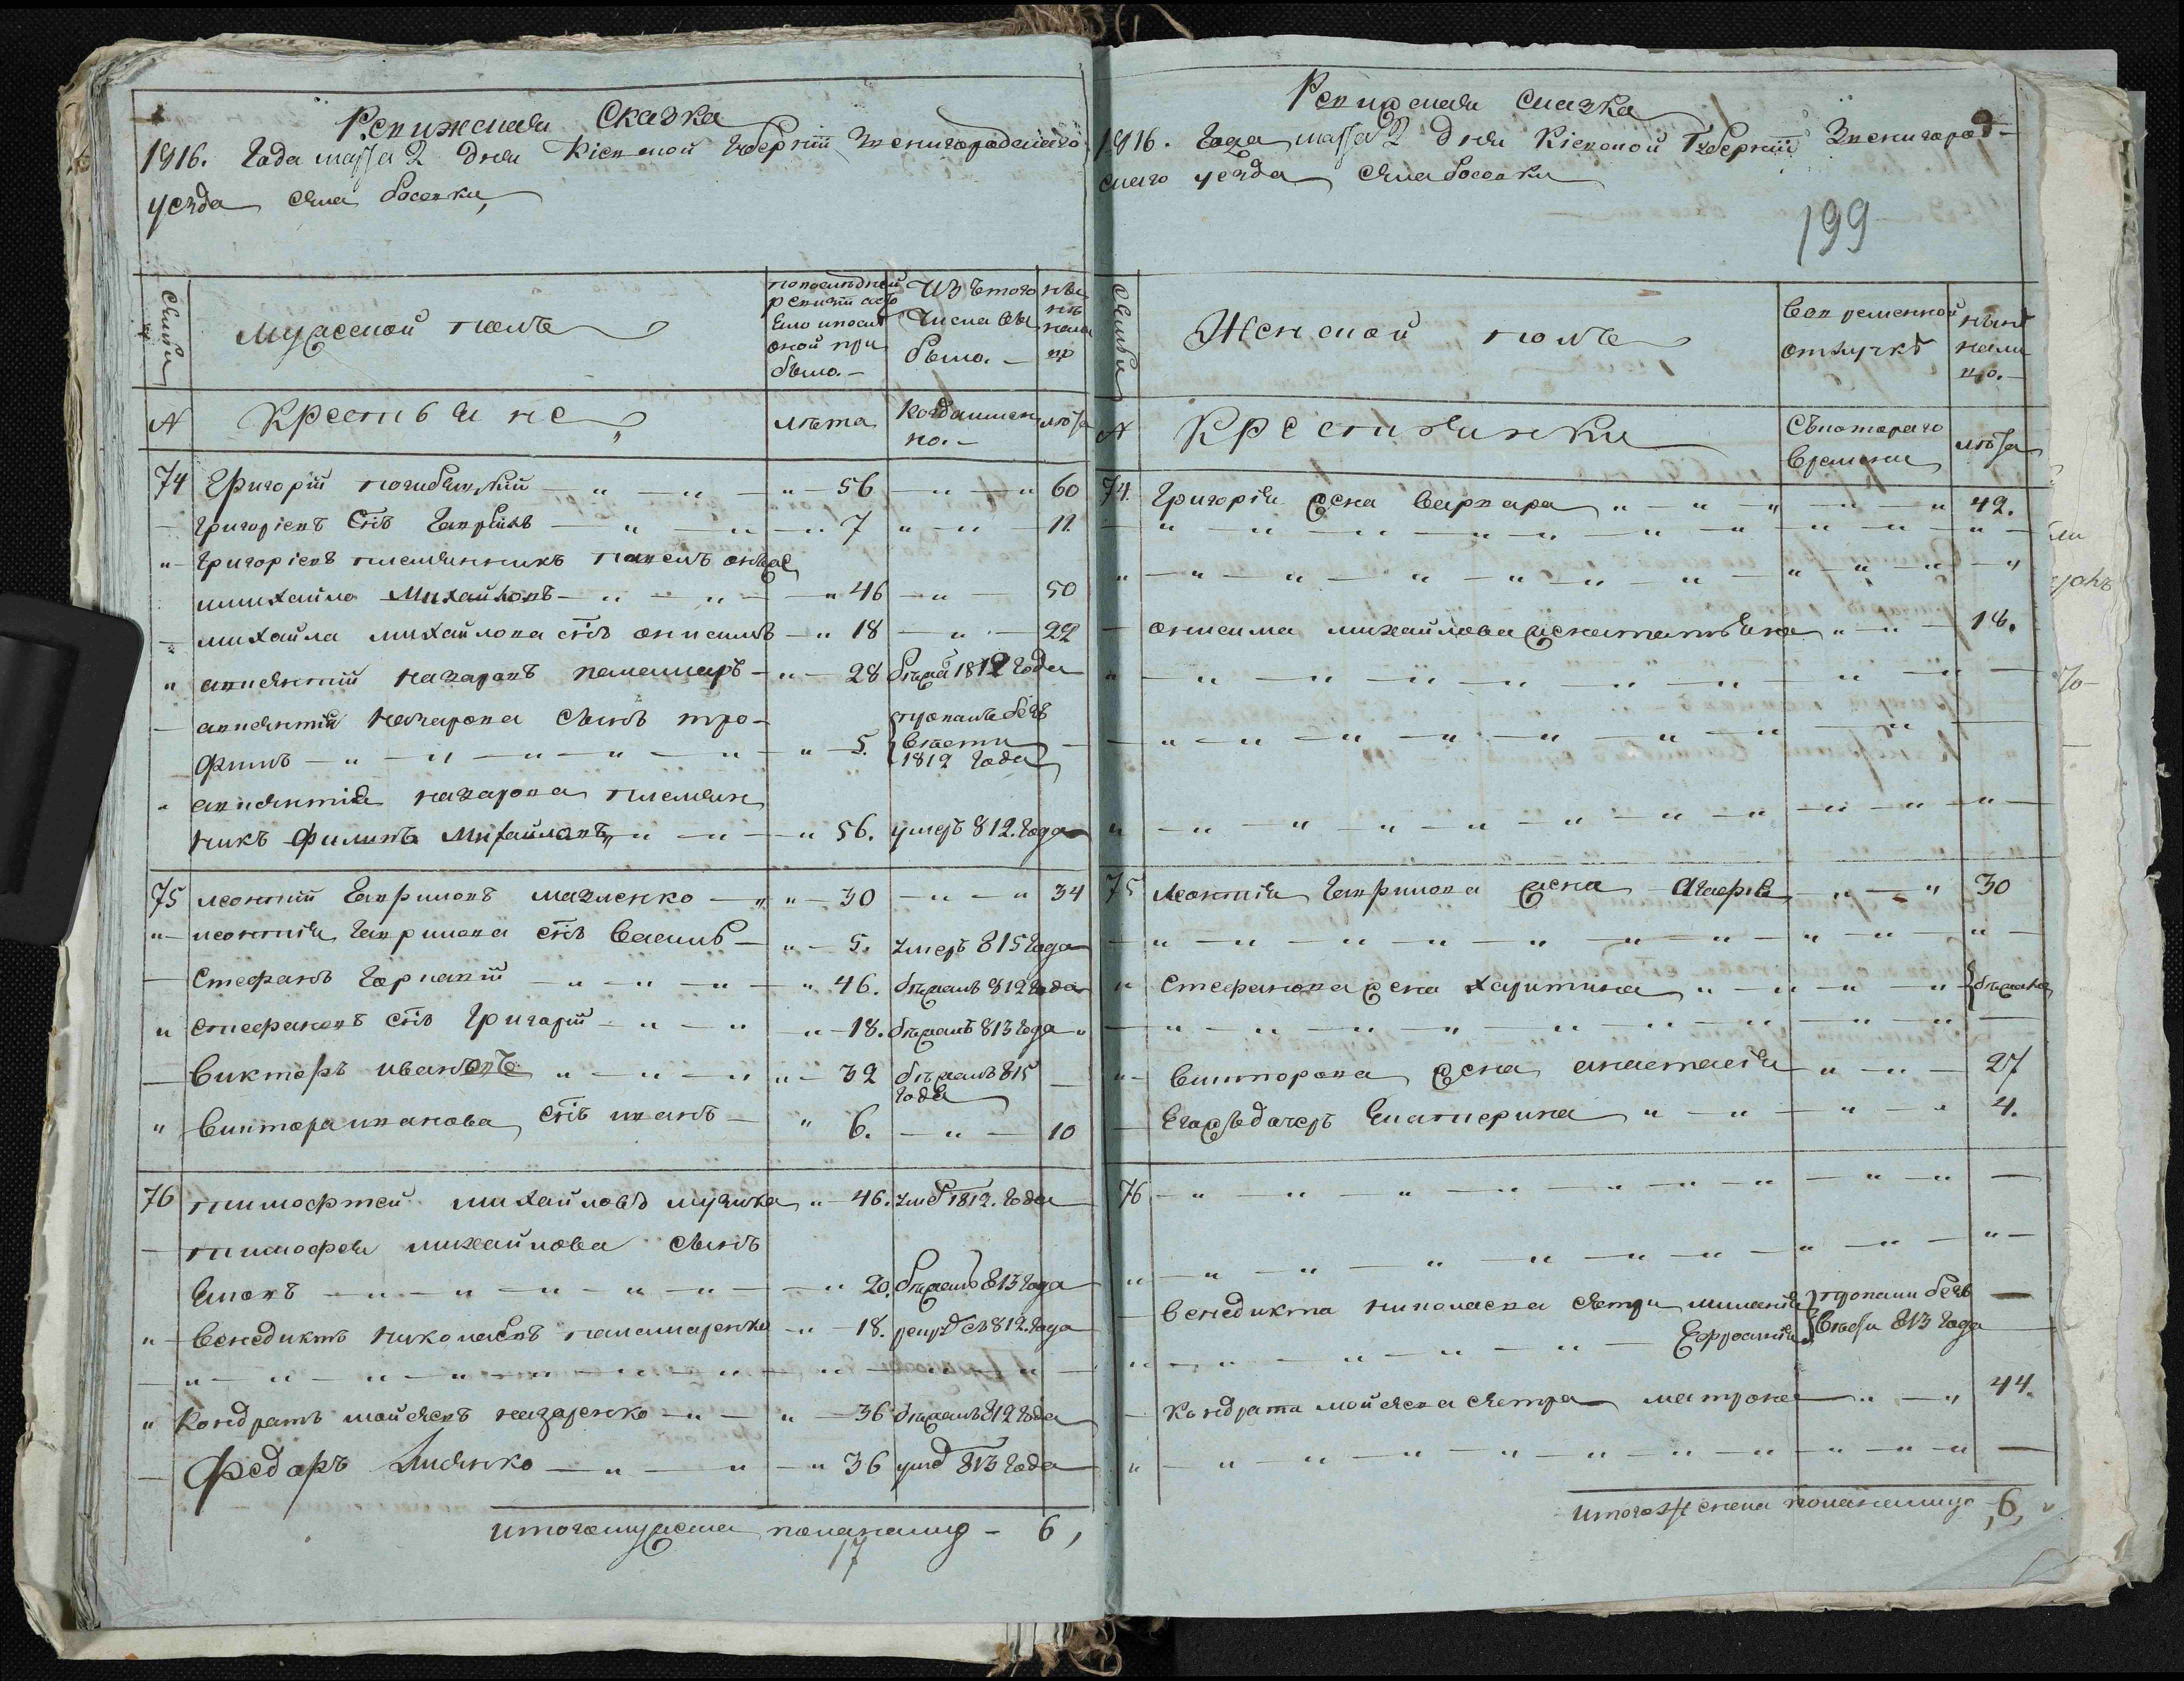 Ревижская Сказка
1816. Года марта 2 дня Кіевской Губерніи Звенигородскаго
уезда села босовки,
Семьи
Мужеской полъ
по последней
ревизіи состо
яло и после
оной при
было. –
Изъ етого
Числа вы
было. –
ныне
на
лицо
№
Крестьяне
лета
Когда именно. –
лета
74 Григорій 56 60
Григоріевъ снъ Гаврило 7 11.
Григоріевъ племянникъ павелъ
михайло Михайловъ 46 50
михайла михайлова снъ онисимъ 18 22
Назаровъ 28 бежалъ 1812 Года
Назарова сынъ тро-
фимъ 5. пропалъ безъ
вести
1812 Года
назарова племян
никъ Филипъ Михайловъ 56. умеръ 812. Года
75 леонтій Гавриловъ мазненко 30 34
леонтія Гаврилова снъ василь 5. умеръ 815 Года
Стефанъ 46. бежалъ 812 Года
Стефановъ снъ Григорій 18. бежалъ 813 Года
Викторъ ивановъ 32 бежалъ 815
Года
Виктора иванова снъ иванъ 6. 10
76 тимофтей михайловъ музика 46. умер 1812. Года
тимофея михайлова сынъ
Яковъ 20. бежалъ 813 Года
Венедиктъ николаевъ паламаренко 18. рекрут въ 812. Года
Кондратъ мойсеевъ назаренко 36 бежалъ 812 Года
Федоръ Лисенко 36 умер 813 Года
итого мужеска пола налицо – 6,
17
Ревижская сказка
1816. Года марта 2 дня Кіевской Губерніи Звенигород-
скаго уезда села босовки
199
Семьи
Женской полъ
Во временной
отлучке
ныне
нали
цо. –
№
Крестьянки
Съ котораго
времени
лета
74. Григорія жена варвара 42.
онисима михайлова жена татьяна 18.
75 Леонтія Гаврилова жена Агафія 30
Стефанова жена харитина бежала
Викторова жена анастасія 27
Егожъ дочеръ Екатерина 4.
76
Венедикта николаева сестри меланія пропали безъ
Ефросинія вести 813 Года
Кондрата мойсеева сестра матрона 44.
итого женска пола налицо 6,